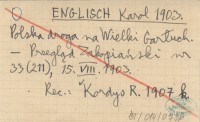 O ENGLISCH Karol 1903.
Polska droga na Wielki Garłuch.
— Przegląd Zakopiański nr
33 (211), 15. VIII. 1903.
Rec.: Kordys R. 1907 k